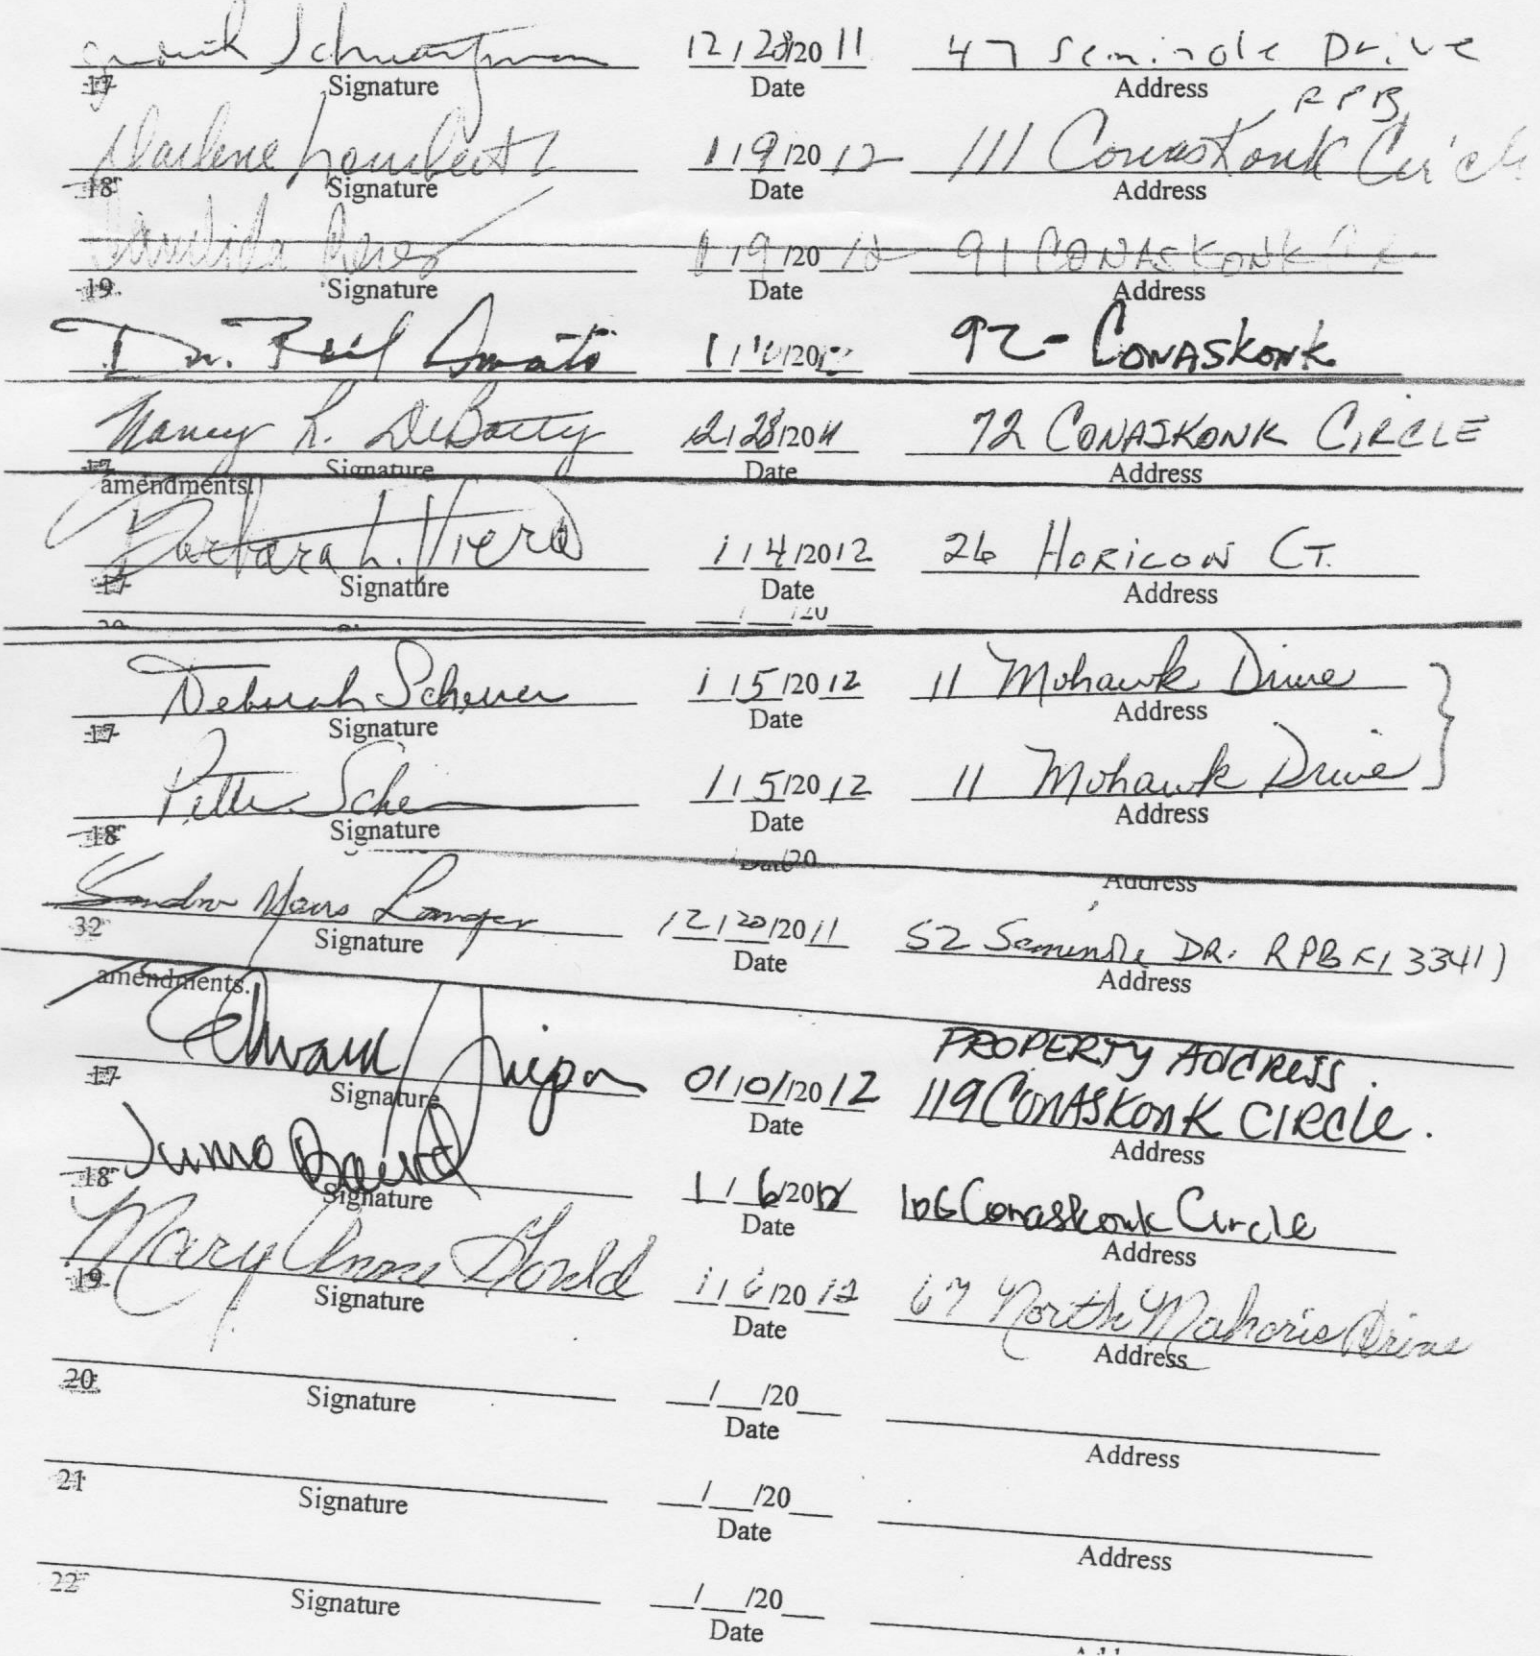 Schwartzman 12/28/2011 47 Seminole Drive
17 Signature Date Address
RPB
Darlene Lambert 1/9/2012 111 Conaskonk Circle
18 Signature Date Address
1/9/2012 91 CONASKONK
19 Signature Date Address
Dr. Amato 1/ /20 92- CONASKONK
Nancy L. DeBatty 12/28/2011 72 CONASKONK CIRCLE
17 Signature Date Address
amendments.
Barbara L. Viera 1/4/2012 26 HORICON CT.
17 Signature Date Address
20 /20
Deborah Scherer 1/5/2012 11 Mohawk Drive
17 Signature Date Address
1/5/2012 11 Mohawk Drive
18 Signature Date Address
Date/20
Address
Sandra Langer 12/20/2011 52 Seminole DR. RPB Fl 33411
32 Signature Date Address
amendments.
PROPERTY ADDRESS.
Edward 01/01/2012 119 CONASKONK CIRCLE.
17 Signature Date Address
David 1/6/2012 106 Conaskonk Circle
18 Signature Date Address
Mary Anne Gould 1/6/2012 67 North Drive
19 Signature Date Address
20 / /20
Signature Date Address
21 / /20
Signature Date Address
22 / /20
Signature Date